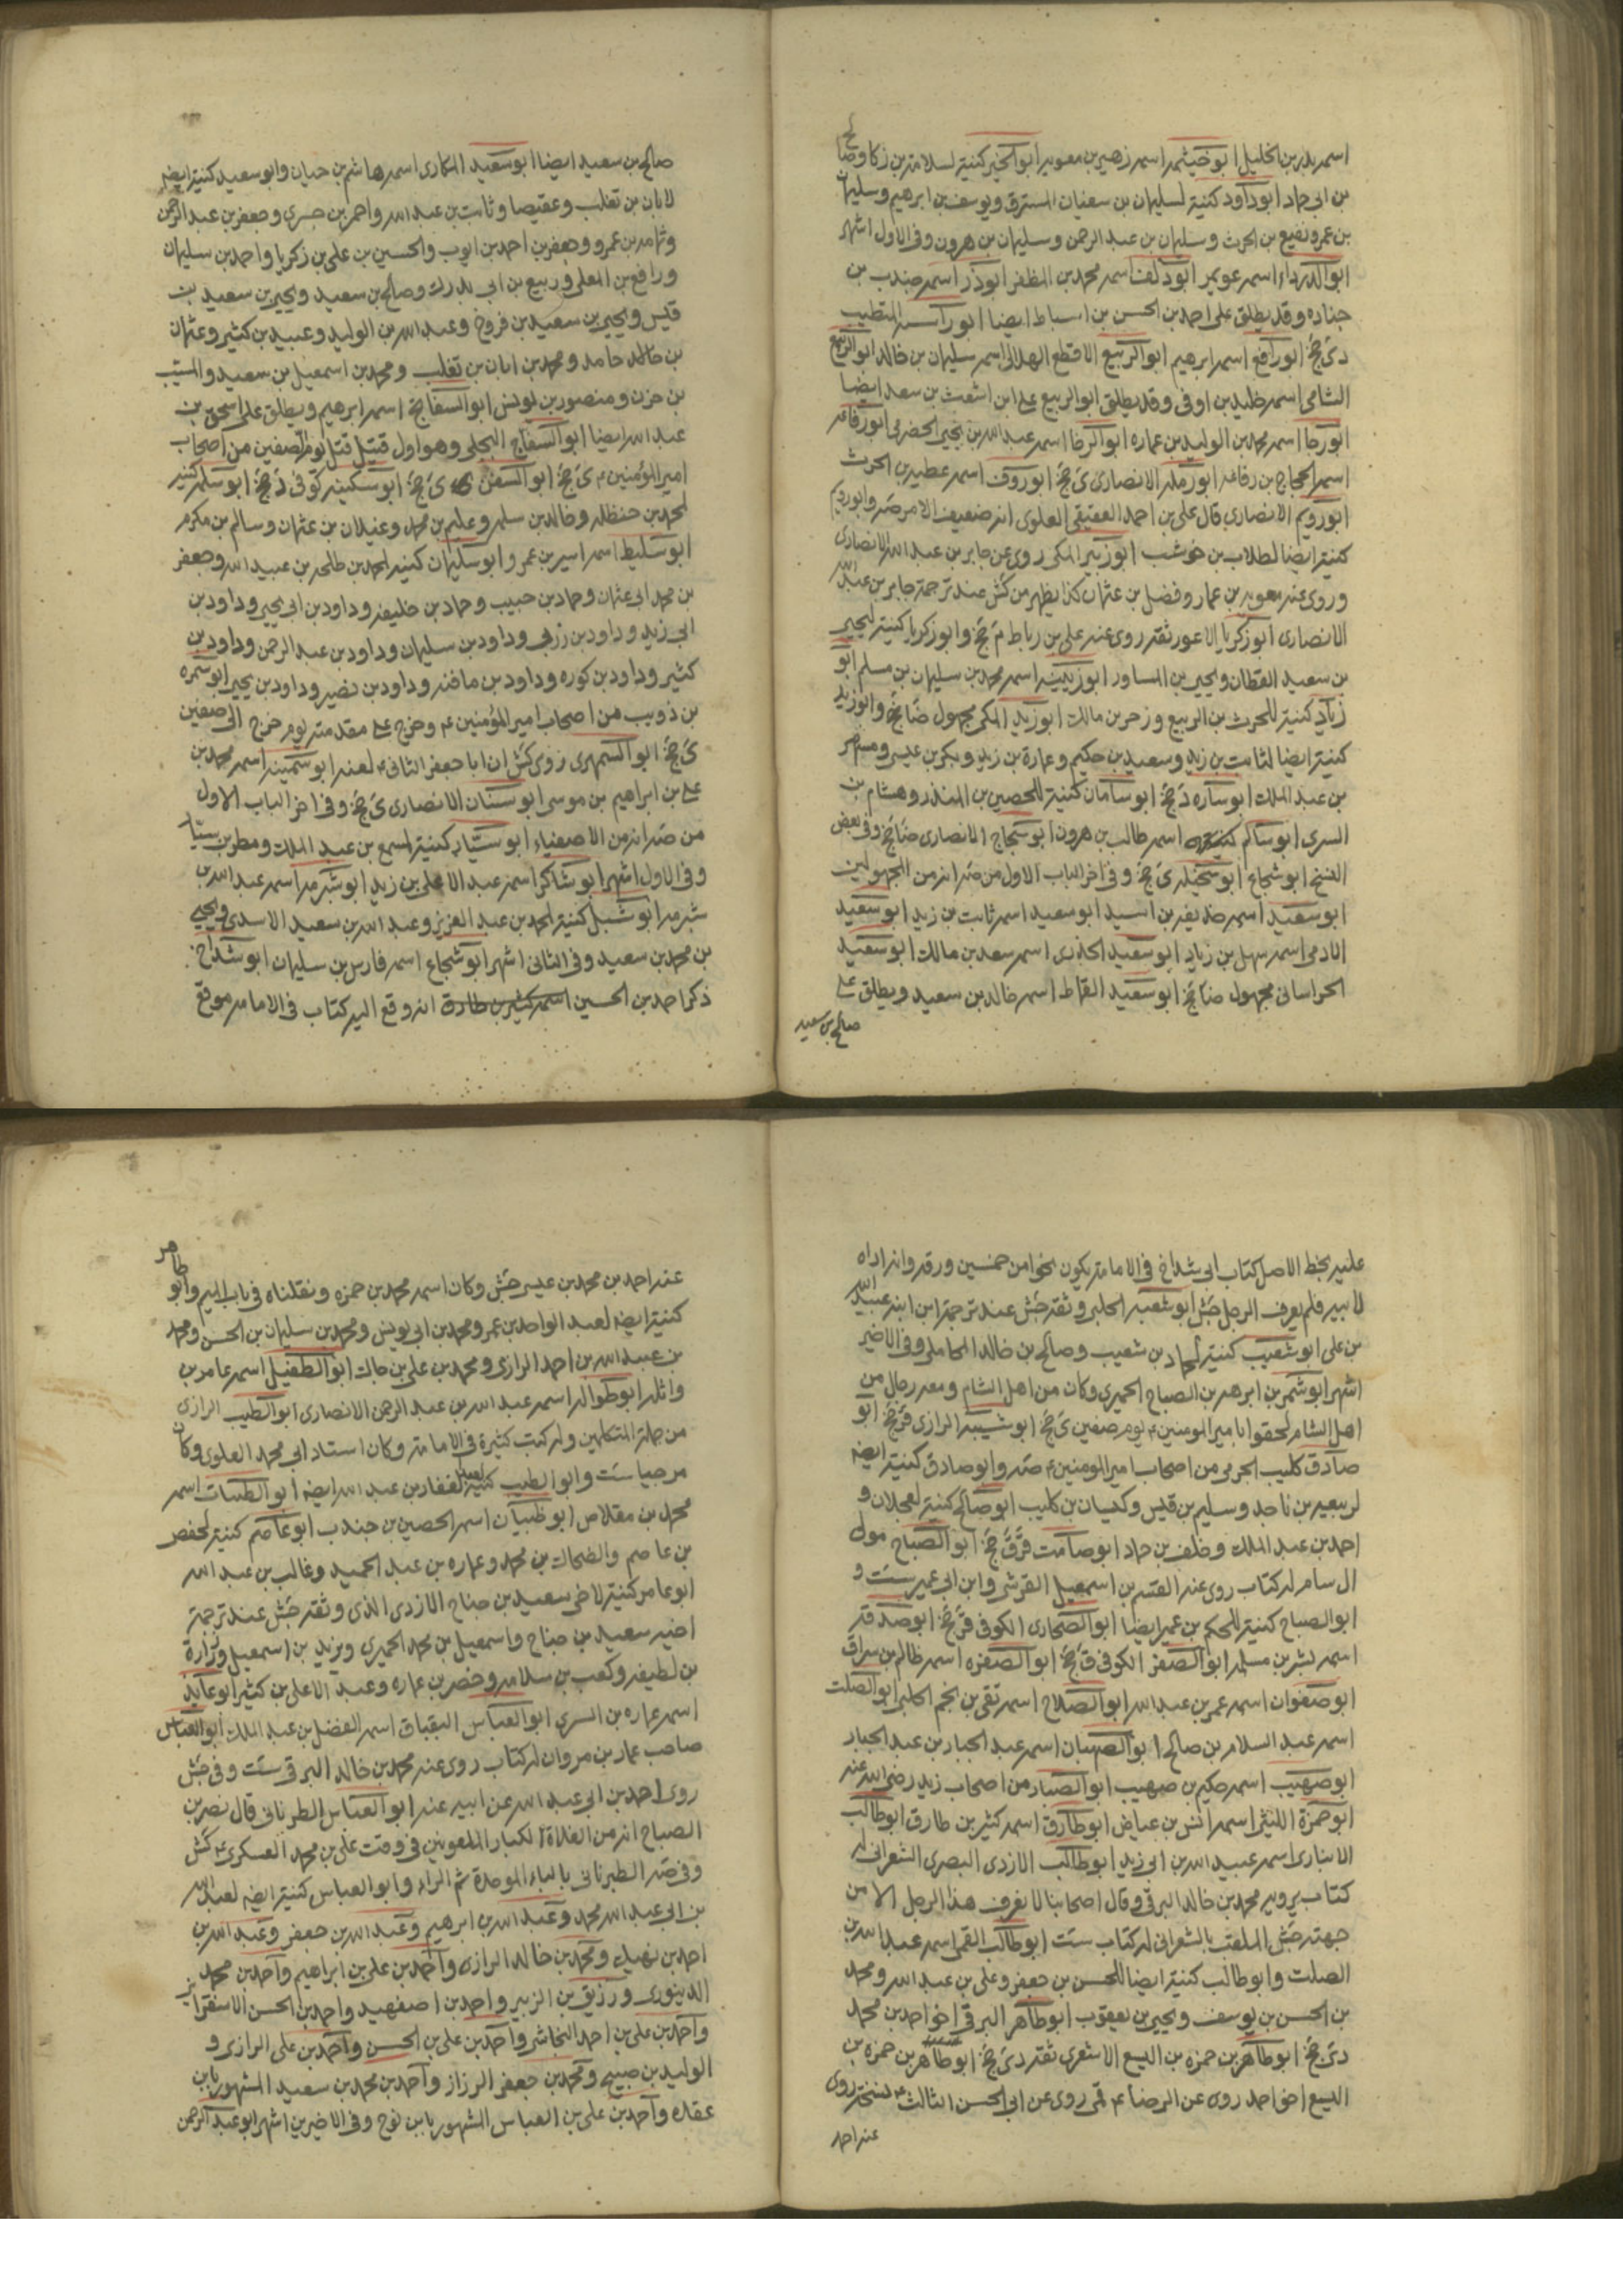 اسمه بدر بن الخليل ابو خيثمه اسمه زهير بن معويه ابو الخير كنيته لسلامة بن زكا وصالح
بن ابي حماد ابو داود كنيته لسليمان بن سفيان المسترق ويوسف بن ابرهيم وسليمان
بن عمرو نفيع بن الحرث وسليمان بن عبد الرحمن وسليمان بن هرون وفى الاول اشهر
ابو الدرداء اسمه عويمر ابو دلف اسمه محمد بن المظفر ابو ذر اسمه جندب بن
جناده وقد يطلق على احمد بن الحسن بن اسباط ايضا ابو راسه المتطيب
دى جخ ابو رافع اسمه ابرهيم ابو الربيع الاقطع الهلالى اسمه سليمان بن خالد ابو الربيع
الشامى اسمه خليد بن اوفى وقد يطلق ابو الربيع على ابن اشعث بن سعد ايضا
ابو رجا اسمه محمد بن الوليد بن عماره ابو الرضا اسمه عبد الله بن يحيى الحضرمى ابو رفاعه
اسمه الحجاج بن رفاعه ابو رمله الانصارى ى جخ ابو روق اسمه عطيه بن الحرث
ابو رويم الانصارى قال على بن احمد العقيقى العلوى انه ضعيف الامر صه وابو رويم
كنيته ايضا لطلاب بن حوشب ابو زبير المكى روى عن جابر بن عبد الله الانصارى
وروى عنه معويه بن عمار وفضل بن عثمان كذا يظهر من كش عند ترجمة جابر بن عبد الله
الانصارى ابو زكريا الاعور ثقه روى عنه على بن رباط م جخ وابو زكريا كنيته ليحيى
بن سعيد القطان ويحيى بن المساور ابو زنيبه اسمه محمد بن سليمان بن مسلم ابو
زياد كنيته للحرث بن الربيع وزحر بن مالك ابو زيد المكى مجهول ضا جخ وابو زيد
كنيته ايضا لثابت بن زيد وسعيد بن حكيم وعمارة بن زيد وبكر بن عيسى ومسهر
بن عبد الملك ابو ساره د جخ ابو ساسان كنيته للحصين بن المنذر وهشام بن
السرى ابو سالم كنيته اسمه طالب بن هرون ابو سجاج الانصارى ضا جخ وفى بعض
النسخ ابو شجاع ابو سخيله ى جخ وفى اخر الباب الاول من صه انه من المجهولين
ابو سعيد اسمه حذيفه بن اسيد ابو سعيد اسمه ثابت بن زيد ابو سعيد
الادمى اسمه سهل بن زياد ابو سعيد الخدرى اسمه سعد بن مالك ابو سعيد
الخراسانى مجهول ضا جخ ابو سعيد القماط اسمه خالد بن سعيد ويطلق على
صالح بن سعيد
صالح بن سعيد ايضا ابو سعيد المكارى اسمه هاشم بن حيان وابو سعيد كنيته ايضه
لابان بن تغلب وعقيصا وثابت بن عبد الله واحمر بن جرى وجعفر بن عبد الرحمن
وثامه بن عمرو وجعفر بن احمد بن ايوب والحسين بن على بن زكريا واحمد بن سليمان
ورافع بن المعلى وربيع بن ابى مدرك وصالح بن سعيد ويحيى بن سعيد بن
قيس ويحيى بن سعيد بن فروخ وعبد الله بن الوليد وعبيد بن كثير وعثمان
بن خالد حامد ومحمد بن ابان بن تغلب ومحمد بن اسمعيل بن سعيد والمسيب
بن حزن ومنصور بن يونس ابو السفاتج اسمه ابرهيم ويطلق على اسحق بن
عبد الله ايضا ابو السفاح البجلى وهو اول قتيل قتل يوم الصفين من اصحاب
امير المؤمنين ع ى جخ ابو السفن ى جخ ابو سكينه كوفى د جخ ابو سلمه كنيته
لمحمد بن حنظله وخالد بن سلمه وعليم بن محمد وغيلان بن عثمان وسالم بن مكرم
ابو سليط اسمه اسير بن عمرو ابو سليمان كنيه لمحمد بن طلحه بن عبيد الله وجعفر
بن محمد ابى عثمان وحماد بن حبيب وحماد بن خليفه وداود بن ابى يحيى وداود بن
ابى زيد وداود بن زربى وداود بن سليمان وداود بن عبد الرحمن وداود بن
كثير وداود بن كوره وداود بن مافنه وداود بن نصير وداود بن يحيى ابو سمره
بن ذويب من اصحاب امير المؤمنين عم وخرج على مقدمته يوم خرج الى صفين
ى جخ ابو السمهرى روى كش ان ابا جعفر الثانى ع لعنه ابو سمينه اسمه محمد بن
على بن ابراهيم بن موسى ابو سنان الانصارى ى جخ وفى اخر الباب الاول
من صه انه من الاصفياء ابو سيار كنيته لمسمع بن عبد الملك ومطر بن سيار
وفى الاول اشهر ابو شاكر اسمه عبد الاعلى بن زيد ابو شبرمه اسمه عبد الله بن
شبرمه ابو شبل كنيته لمحمد بن عبد العزيز وعبد الله بن سعيد الاسدى ويحيى
بن محمد بن سعيد وفى الثانى اشهر ابو شجاع اسمه فارس بن سليمان ابو شداخ
ذكر احمد بن الحسين اسمه كثير بن طارق انه وقع اليه كتاب فى الامامه موقع
عليه بخط الاصل كتاب ابى شداخ فى الامامة يكون نحوا من خمسين ورقه وانه اراه
لابيه فلم يعرف الرجل جش ابو شعبه الحلبى وثقه جش عند ترجمة ابن ابنه عبيد الله
بن على ابو شعيب كنيته لمحماد بن شعيب وصالح بن خالد المحاملى وفى الاخير
اشهر ابو شمر بن ابرهه بن الصباح الحميرى وكان من اهل الشام ومعه رجال من
اهل الشام لحقوا بامير المومنين ع يوم صفين ى جخ ابو شيبه الرازى ق جخ ابو
صادق كليب الجرمى من اصحاب امير المومنين ع صه وابو صادق كنيته ايضه
لربيعه بن ناجد وسليم بن قيس وكيسان بن كليب ابو صالح كنيته لعجلان و
احمد بن عبد الملك وخلف بن حماد ابو صامت قر ق جخ ابو الصباح مولى
ال سام له كتاب روى عنه القسم بن اسمعيل القرشى وابن ابى عمير ست و
ابو الصباح كنيته للحكم بن عمير ايضا ابو الصحارى الكوفى ق جخ ابو صدقه
اسمه بشر بن مسلمه ابو الصفر الكوفى ق جخ ابو الصفره اسمه ظالم بن سراق
ابو صفوان اسمه عمر بن عبد الله ابو الصلاح اسمه تقى بن نجم الحلبى ابو الصلت
اسمه عبد السلام بن صالح ابو الصهبان اسمه عبد الجبار بن عبد الجبار
ابو صهيب اسمه حكيم بن صهيب ابو الصبار من اصحاب زيد رضى الله عنه
ابو حمزة الليثى اسمه انس بن عياض ابو طارق اسمه كثير بن طارق ابو طالب
الانبارى اسمه عبيد الله بن ابى زيد ابو طالب الازدى البصرى الشعرانى له
كتاب يرويه محمد بن خالد البرقى وقال اصحابنا لا يعرف هذا الرجل الا من
جهته جش الملقب بالشعرانى له كتاب ست ابو طالب القمى اسمه عبد الله بن
الصلت وابو طالب كنيته ايضا للحسن بن جعفر وعلى بن عبد الله ومحمد
بن الحسن بن يوسف ويحيى بن يعقوب ابو طاهر البرقى اخو احمد بن محمد
دى جخ ابو طاهر بن حمزه بن اليسع الاشعرى ثقه دى جخ ابو طاهر بن حمزه بن
اليسع اخو احمد روى عن الرضا ع قى روى عن ابى الحسن الثالث ع نسخة روى
عنه احمد
عنه احمد بن محمد بن عيسى جش وكان اسمه محمد بن حمزه ونقلناه فى باب الميم وابو طاهر
كنيته ايضه لعبد الواحد بن عمر ومحمد بن ابى يونس ومحمد بن سليمان بن الحسن ومحمد
بن عبيد الله بن احمد الرازى ومحمد بن على بن جاك ابو الطفيل اسمه عامر بن
واثله ابو طواله اسمه عبد الله بن عبد الرحمن الانصارى ابو الطيب الرازى
من جلة المتكلمين وله كتب كثيرة فى الامامة وكان استاد ابى محمد العلوى وكان
مرجيا ست وابو الطيب كنيته لعبد الغفار بن عبد الله ايضه ابو الطيبات اسمه
محمد بن مقلاص ابو ظبيان اسمه الحصين بن جندب ابو عاصم كنيته لحفص
بن عاصم والضحاك بن محمد وعماره بن عبد الحميد وغالب بن عبد الله
ابو عامر كنيته لاخى سعيد بن جناح الازدى الذى وثقه جش عند ترجمة
اخيه سعيد بن جناح واسمعيل بن محمد الحميرى ويزيد بن اسمعيل وزرارة
بن لطيفه وكعب بن سلامه وخضر بن عماره وعبد الاعلى بن كثير ابو عايذ
اسمه عماره بن السرى ابو العباس البقباق اسمه الفضل بن عبد الملك ابو العباس
صاحب عمار بن مروان له كتاب روى عنه محمد بن خالد البرقى ست وفى جش
روى احمد بن ابى عبد الله عن ابيه عنه ابو العباس الطرنانى قال نصر بن
الصباح انه من الغلاة الكبار الملعونين فى وقت على بن محمد العسكرى ع كش
وفى صه الطبرنانى بالباء الموحدة ثم الراء وابو العباس كنيته ايضه لعبد الله
بن ابى عبد الله محمد وعبد الله بن ابرهيم وعبد الله بن جعفر وعبد الله بن
احمد بن نهيك ومحمد بن خالد الرازى واحمد بن على بن ابراهيم واحمد بن محمد
الدينورى ورزيق بن الزبير واحمد بن اصفهيد واحمد بن الحسن الاسفراينى
واحمد بن على بن احمد النجاشى واحمد بن على بن الحسن واحمد بن على الرازى و
الوليد بن صبيح ومحمد بن جعفر الرزاز واحمد بن محمد بن سعيد المشهور بابن
عقده واحمد بن على بن العباس المشهور بابن نوح وفى الاخيرين اشهر ابو عبد الرحمن